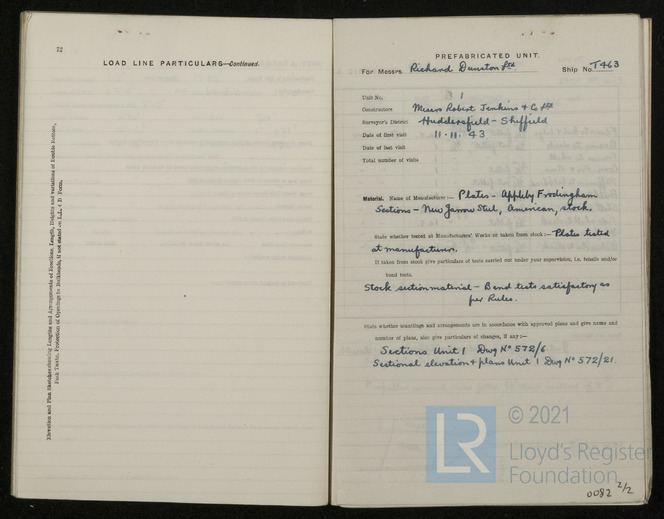 72
LOAD LINE PARTICULARS—Continued.
Elevation and Plan Sketches showing Lengths and Arrangements of Erections, Length, Heights and variations of Double Bottom,
Peak Tanks, Protection of Openings in Bulkheads, if not stated on L.L. 4 D Form.
PREFABRICATED UNIT.
For Messrs. Richard Dunston Ltd. Ship No. T463
Unit No. 1
Constructors Messrs Robert Jenkins & Co Ltd
Surveyor's District Huddersfield - Sheffield
Date of first visit 11.11.43
Date of last visit
Total number of visits
Material. Name of Manufacturer:— Plates - Appleby Frodingham
Sections - New Jarrow Steel, American, stock.
State whether tested at Manufacturers' Works or taken from stock:— Plates tested
at manufacturers.
If taken from stock give particulars of tests carried out under your supervision, i.e. tensile and/or
bend tests.
Stock section material - Bend tests satisfactory as
per Rules.
State whether scantlings and arrangements are in accordance with approved plans and give name and
number of plans, also give particulars of changes, if any:—
Sections Unit 1 Dwg No 572/6
Sectional elevation & plans Unit 1 Dwg No 572/21.
LR
© 2021
Lloyd's Register
Foundation
0082 2/2